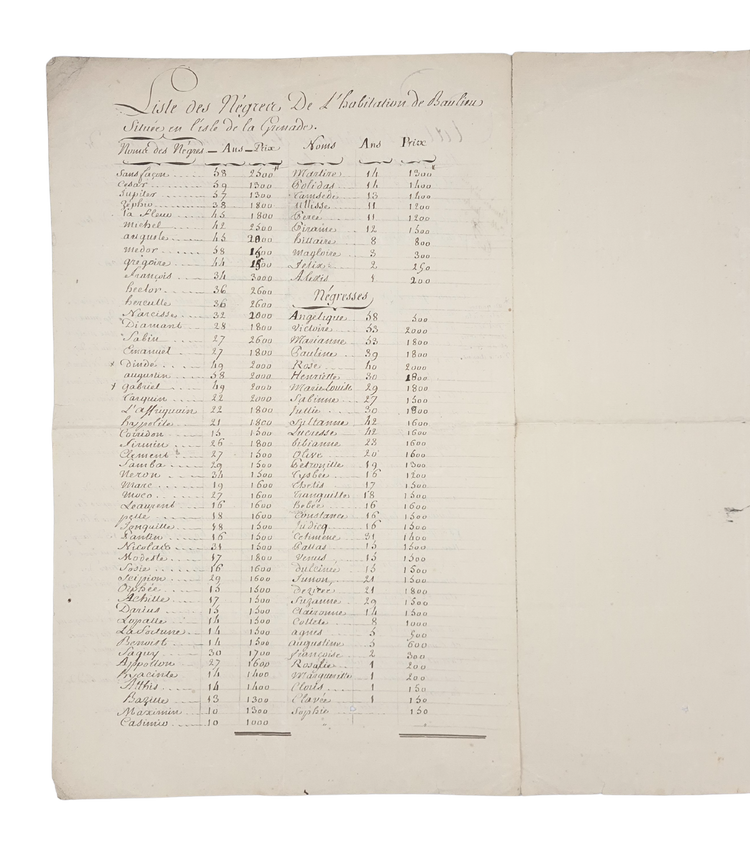 Liste des Négres De L'habitation de Baulieu
Située en l'isle de la Grenade.
Noms des Négres Ans Prix
Sans façon 58 2500
Cesar 59 1300
Jupiter 57 1300
Zephir 38 1800
La fleur 45 1800
michel 42 2500
anguste 45 2000
medor 58 1500
gregoire 54 1500
françois 34 3000
hector 36 2600
hercule 36 2600
Narcisse 32 2000
Diamant 28 1800
Sabin 27 2600
Emanuel 27 1800
Dindé 49 2000
augustin 58 2000
gabriel 49 2000
Tarquin 22 2000
L'affriquain 22 1800
hypolite 21 1800
Coridon 15 1500
Firmin 26 1800
Clement 27 1500
Samba 29 1500
Neron 34 1500
Marc 19 1600
Moco 27 1600
Leaurent 16 1600
18 1600
Jonquille 18 1500
Pantin 16 1500
Nicolas 31 1500
Modeste 17 1800
Sosie 16 1600
Scipion 29 1600
Orphée 15 1500
Achille 17 1500
Darius 15 1500
14 1500
La fortune 14 1500
Benoist 14 1500
Saguy 30 1700
Appollon 27 1600
hyacinte 14 1400
Athis 14 1400
Bazille 13 1300
Maximin 10 1300
Casimir 10 1000
Noms Ans Prix
Martire 14 1300
Colidas 14 1400
13 1400
Ulisse 11 1200
11 1200
Pirame 12 1500
hillaire 8 800
Magloire 3 300
Felix 2 250
Alexis 1 200
Négresses
Angelique 58 500
Victoire 53 2000
Marianne 53 1800
Pauline 39 1800
Rose 40 2000
Henriette 30 1800
Marie Louise 29 1800
Sabinne 27 1500
Julie 30 1800
Sultanne 42 1600
Lucresse 42 1600
bibianne 23 1600
Olive 20 1600
Petronille 19 1300
Tysbée 16 1200
Thetis 17 1500
Tranquille 18 1500
hebée 16 1600
Constance 16 1500
Judicq 16 1500
Celimene 31 1400
Pallas 15 1500
Venus 15 1500
Dulcinée 15 1500
Junon 21 1500
Dezirée 21 1800
Suzanne 29 1500
Claironne 14 1500
Collete 8 1000
agnes 5 500
augustine 5 600
françoise 2 300
Rosalie 1 200
Marguerite 1 200
Cloris 1 150
Clavée 1 150
Sophie 150